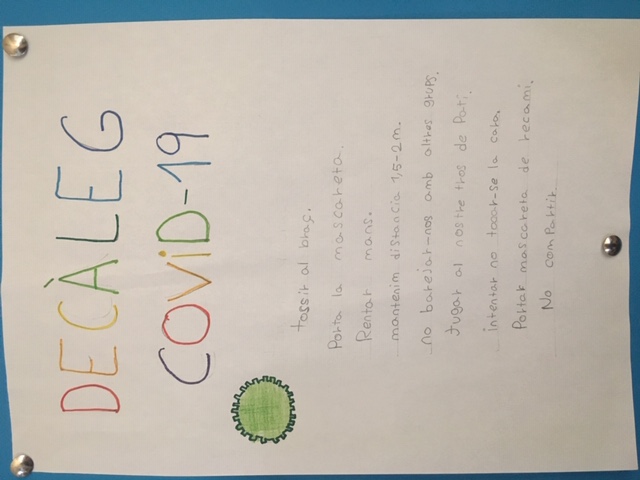 DECÀLEG
COVID-19
tossir al braç.
Porta la mascareta.
Rentar mans.
mantenim distancia 1,5-2m.
no barejar-nos amb altres grups.
Jugar al nostre tros de Pati.
intentar no tocar-se la cara.
Portar mascareta de recami.
No compartir